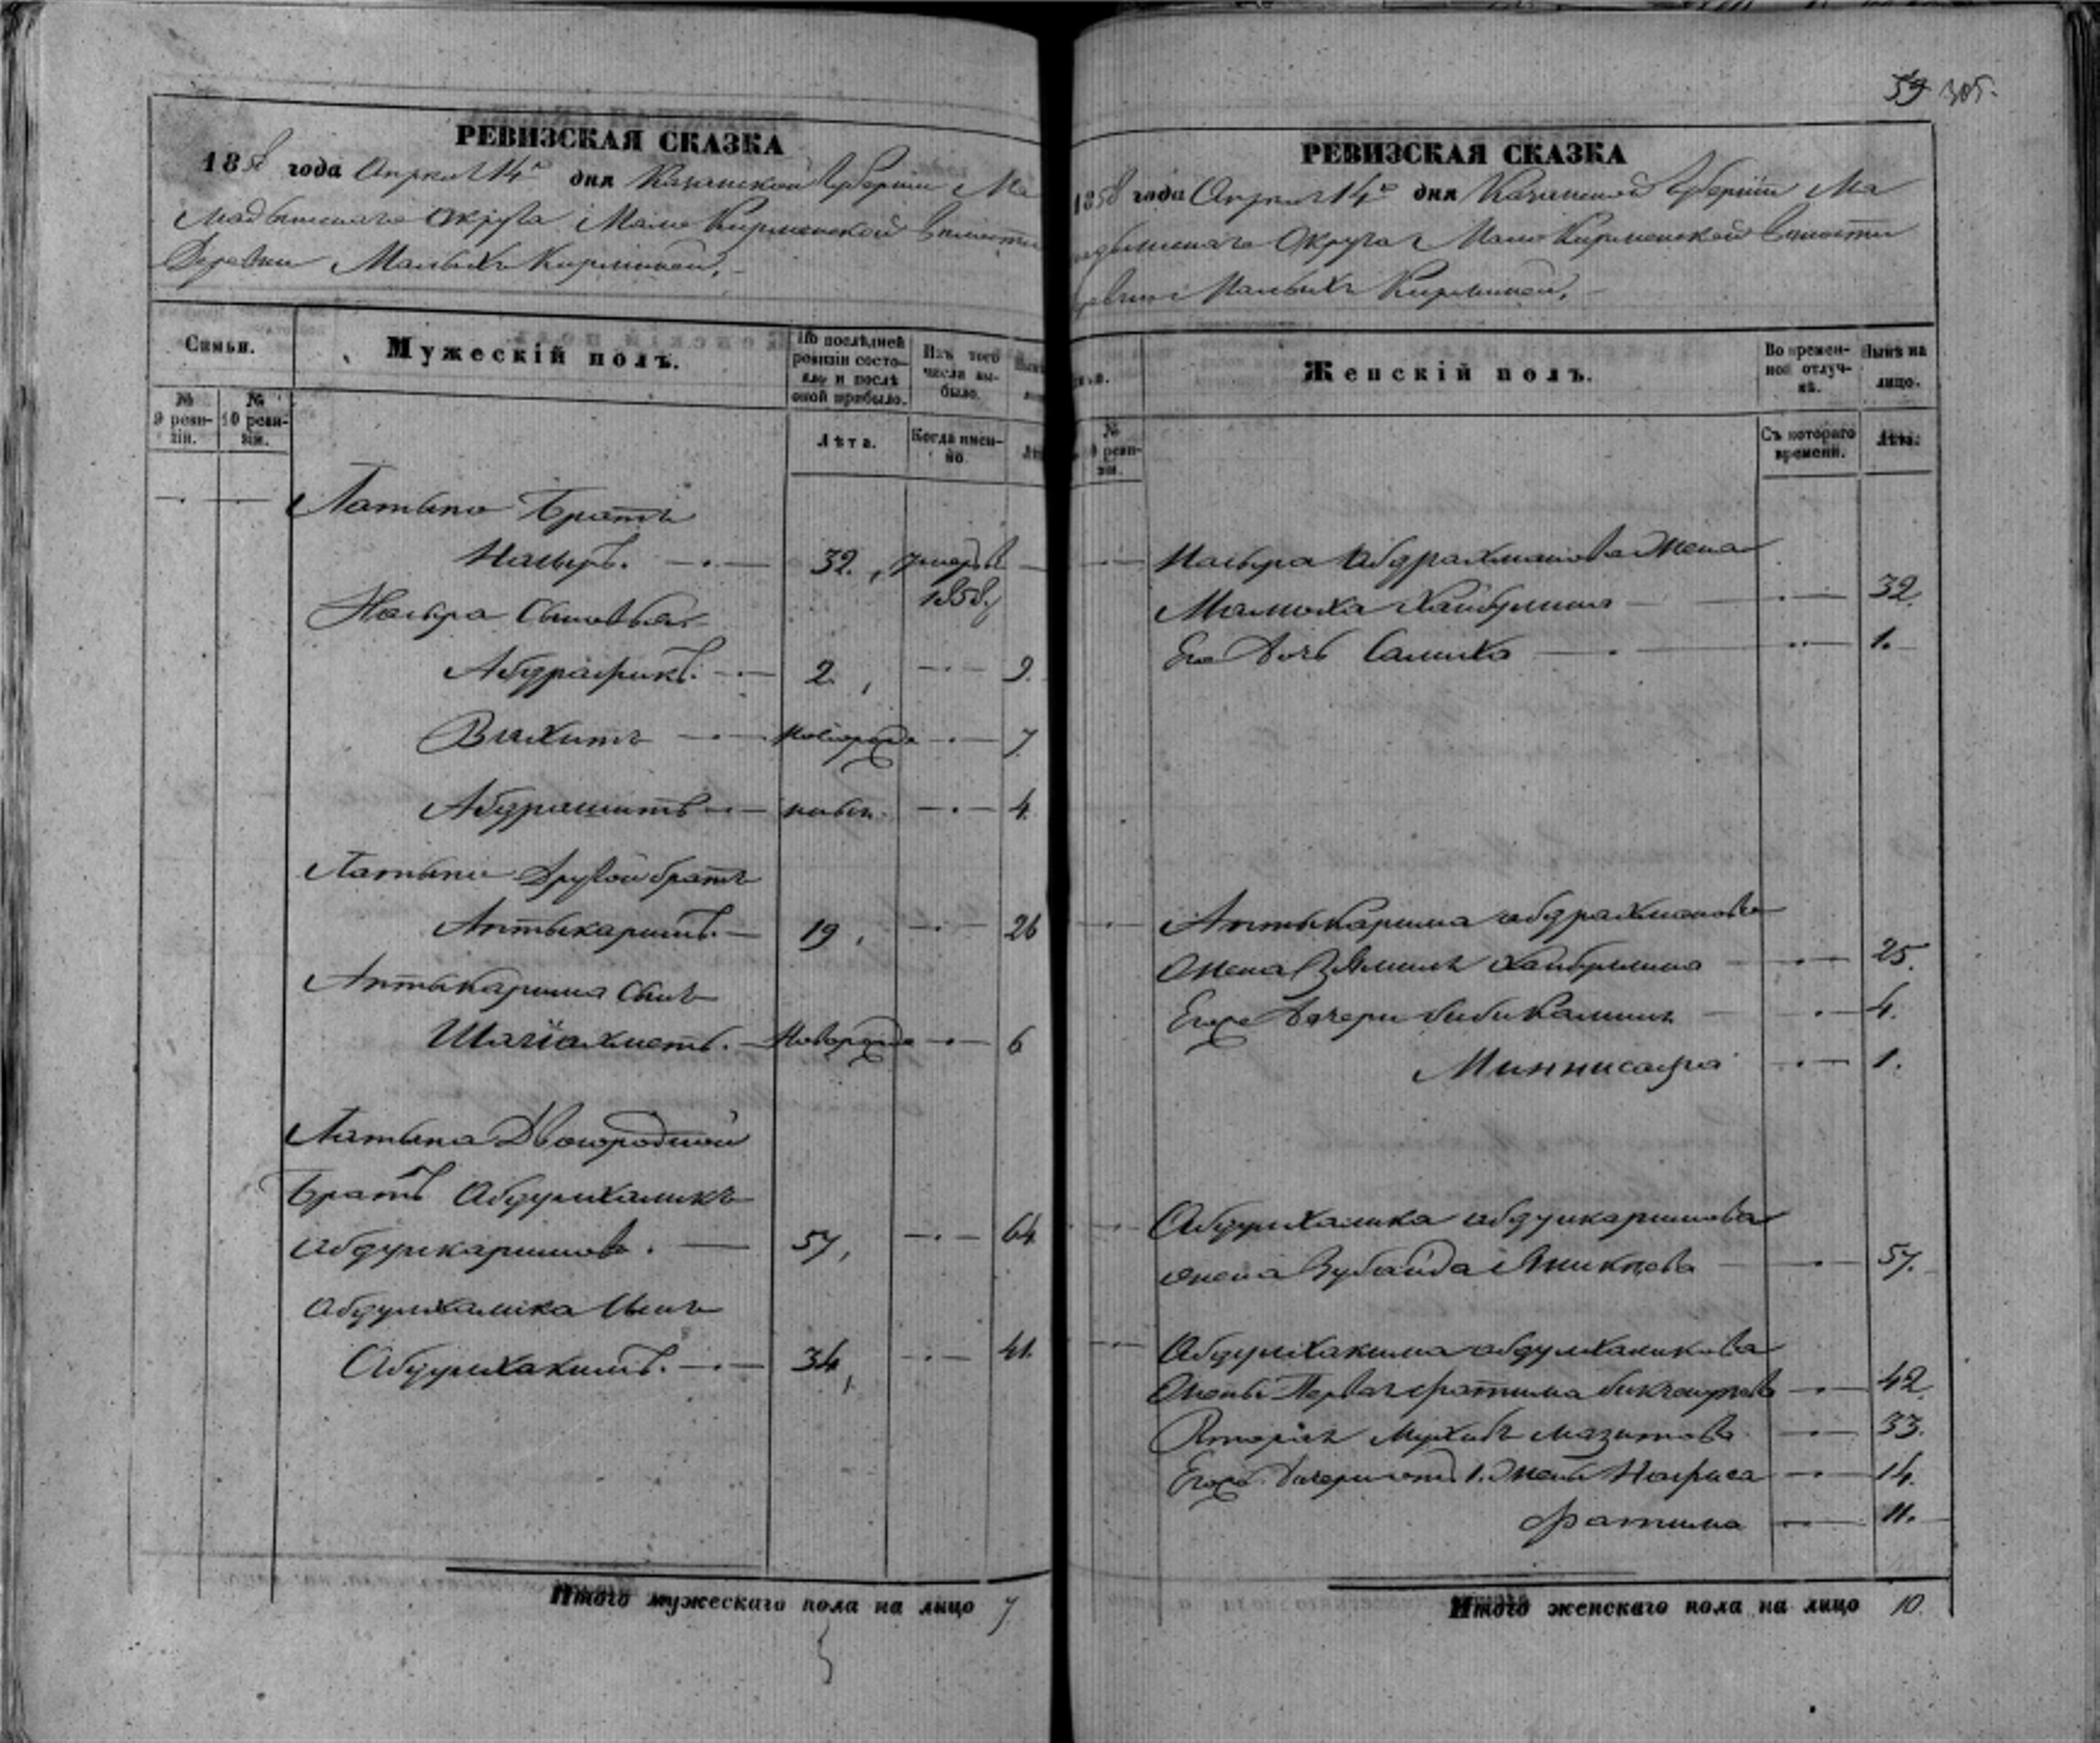 РЕВИЗСКАЯ СКАЗКА
1858 года Апреля 14го дня Казанской Губернiи Ма
мадышскаго Округа Мало Кирменской Волости
Деревни Малыхъ Кирменей.
Семьи.
Мужескій полъ.
По послѣдней ревизіи состояло и послѣ оной прибыло.
Изъ того числа выбыло.
№ 9 ревизіи.
№ 10 ревизіи.
Лѣта.
Когда именно.
Латыпа Братъ
Насыръ. 32. умеръ в 1858.
Насыра Сыновья
Абдрафикъ. 2. 9.
Вахитъ новорожд 7.
Абдрашитъ новъ. 4.
Латыпа Другой братъ
Аптыкаримъ. 19. 26
Аптыкарима Сынъ
Шагiахметъ. Новорожд 6
Латыпа Двоюродной
Братъ Абдулхаликъ
Абдулкаримовъ. 57, 64
Абдулхалика Сынъ
Абдулхакимъ. 34, 41.
Итого мужескаго пола на лицо 7
59 305.
РЕВИЗСКАЯ СКАЗКА
1858 года Апреля 14го дня Казанской Губернiи Ма
мадышскаго Округа Мало Кирменской Волости
Деревни Малыхъ Кирменей.
№ 10 ревизіи.
Женскій полъ.
Во временной отлучкѣ.
Нынѣ на лицо.
Съ котораго времени.
Лѣта.
Насыра Абдрахманова Жена
Хайбулина 32.
Его Дочь Салиха 1.
Аптыкарима абдрахманова
Жена Хайбулина 25.
Егоже Дочери бибикамиля 4.
Миннисафа 1.
Абдулхалика абдулкаримова
жена Зубайда 57.
Абдулхакима абдулхаликова
Жены Первая фатима 42.
Вторая мазитова 33.
Егожъ Дочери отъ 1. Жены Нафиса 14.
Фатима 11.
Итого женскаго пола на лицо 10.